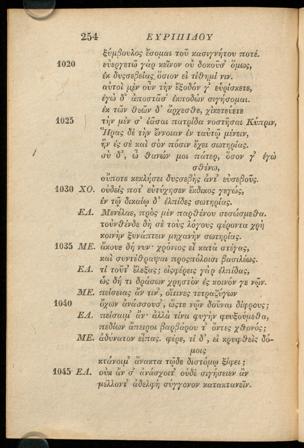 254 ΕΥΡΙΠΙΔΟΥ
ξύμβουλος ἔσομαι τοῦ κασιγνήτου ποτέ.
1020 εὐεργετῶ γὰρ κεῖνον οὐ δοκοῦσ' ὅμως,
ἐκ δυσσεβείας ὅσιον εἰ τίθημί νιν.
αὐτοὶ μὲν οὖν τὴν ἔξοδόν γ' εὑρίσκετε,
ἐγὼ δ' ἀποστᾶσ' ἐκποδὼν σιγήσομαι.
ἐκ τῶν θεῶν δ' ἄρχεσθε, χἰκετεύετε
1025 τὴν μέν σ' ἐᾶσαι πατρίδα νοστῆσαι Κύπριν,
Ἥρας δὲ τὴν ἔννοιαν ἐν ταὐτῷ μένειν,
ἣν ἐς σὲ καὶ σὸν πόσιν ἔχει σωτηρίας.
σὺ δ', ὦ θανών μοι πάτερ, ὅσον γ' ἐγὼ
σθένω,
οὔποτε κεκλήσει δυσσεβὴς ἀντ' εὐσεβοῦς.
1030 ΧΟ. οὐδείς ποτ' εὐτύχησεν ἔκδικος γεγώς,
ἐν τῷ δικαίῳ δ' ἐλπίδες σωτηρίας.
ΕΛ. Μενέλαε, πρὸς μὲν παρθένου σεσώσμεθα.
τοὐνθένδε δὴ σὲ τοὺς λόγους φέροντα χρὴ
κοινὴν ξυνάπτειν μηχανὴν σωτηρίας.
1035 ΜΕ. ἄκουε δή νυν· χρόνιος εἶ κατὰ στέγας,
καὶ συντέθραψαι προσπόλοισι βασιλέως.
ΕΛ. τί τοῦτ' ἔλεξας; εἰσφέρεις γὰρ ἐλπίδας,
ὡς δή τι δράσων χρηστὸν ἐς κοινόν γε νῷν.
ΜΕ. πείσειας ἄν τιν', οἵτινες τετραζύγων
1040 ὄχων ἀνάσσουσ', ὥστε νῷν δοῦναι δίφρους;
ΕΛ. πείσαιμ' ἄν· ἀλλὰ τίνα φυγὴν φευξούμεθα,
πεδίων ἄπειροι βαρβάρου τ' ὄντες χθονός;
ΜΕ. ἀδύνατον εἶπας. φέρε, τί δ', εἰ κρυφθεὶς δό-
μοις
κτάνοιμ' ἄνακτα τῷδε διστόμῳ ξίφει;
1045 ΕΛ. οὐκ ἄν σ' ἀνάσχοιτ' οὐδὲ σιγήσειεν ἂν
μέλλοντ' ἀδελφὴ σύγγονον κατακτανεῖν.